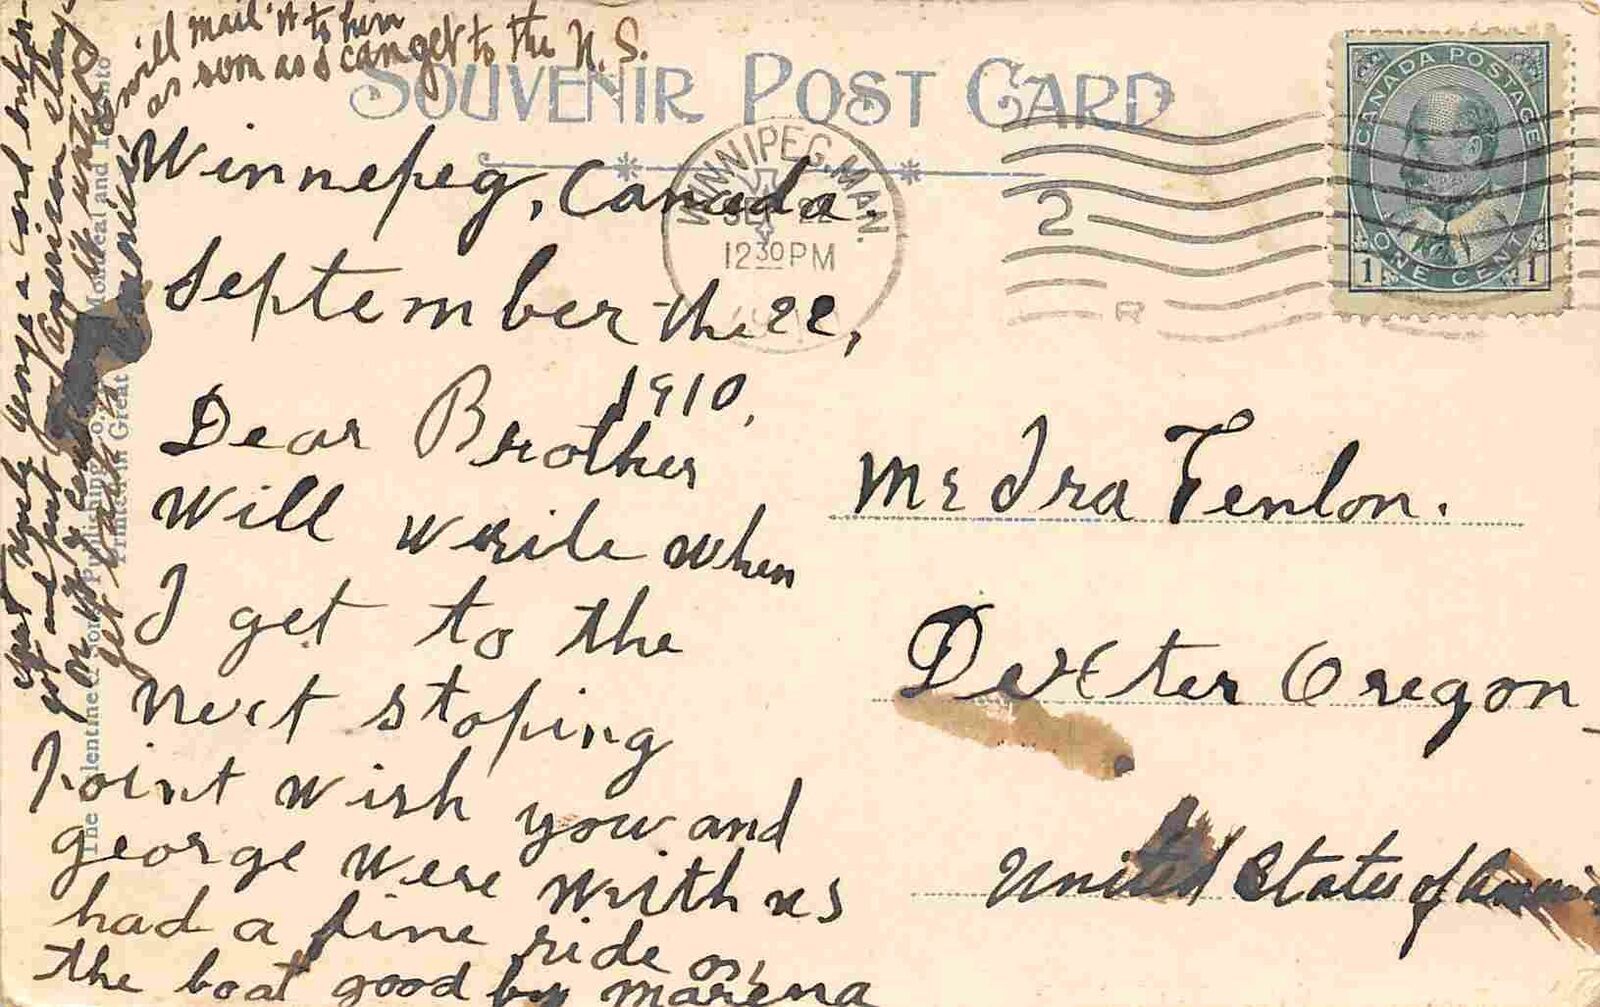 SOUVENIR POST CARD
WINNIPEG, MAN.
1230PM
2
R
CANADA POSTAGE
ONE CENT
1 1
Winnepeg, Canada.
September the 22,
1910,
Dear Brother
Will write when
I get to the
next stoping
point wish you and
george were with us
had a fine ride on
the boat good by marena
Mr Ira Fenlon.
Dexter Oregon
United States of America
just wrote george a card but
got and put american stamp
on it
get back to the united
will mail it to him
as soon as I can get to the U. S.
The Valentine & Sons Publishing Co., Montreal and Toronto
Printed in Great